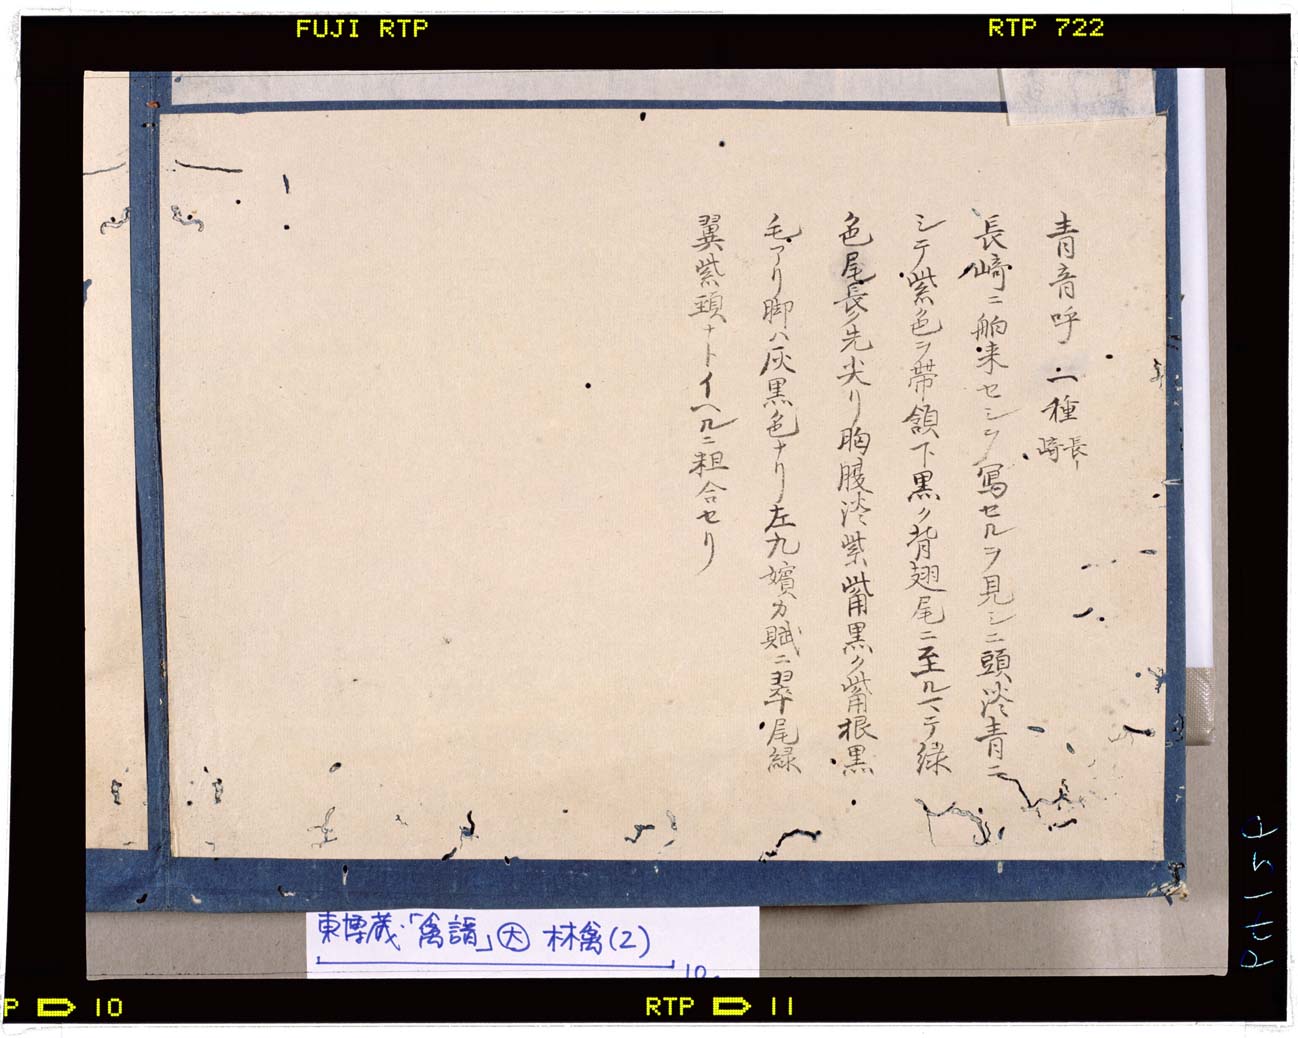 FUJI RTP
RTP 722
青音呼 一種 長崎
長崎ニ舶来セシヲ寫セルヲ見シニ頭淡青ニ
シテ紫色ヲ帯頷下黒ク背翅尾ニ至ルマテ緑
色尾長ク先尖リ胸腹淡紫觜黒ク觜根黒
毛アリ脚ハ灰黒色ナリ左九嬪カ賦ニ翠尾緑
翼紫頸ナトイヘルニ粗合セリ
東博蔵・「禽譜」大 林禽(2)
10
P 10
RTP 11